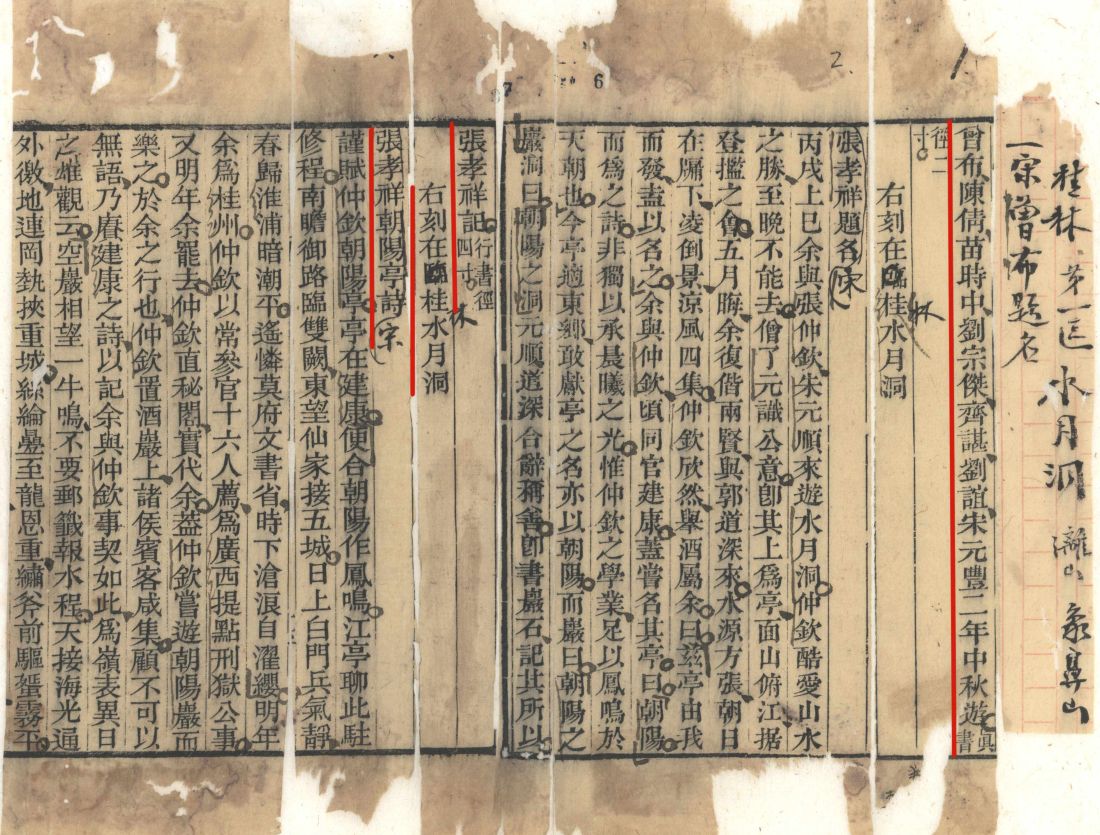 桂林 第一区 水月洞 灕山 象鼻山
一宋曾布題名
曾布陳倩苗時中劉宗傑齊諶劉誼宋元豐二年中秋遊眞書
徑二寸
右刻在臨桂水月洞
林
張孝祥題名宋
丙戌上巳余與張仲欽朱元順來遊水月洞仲欽酷愛山水
之勝至晚不能去僧了元識公意卽其上爲亭面山俯江据
登攬之會五月晦余復偕兩賢與郭道深來水源方張朝日
在牖下凌倒景涼風四集仲欽欣然舉酒屬余曰茲亭由我
而發盍以名之余與仲欽頃同官建康蓋嘗名其亭曰朝陽
而爲之詩非獨以承晨曦之光惟仲欽之學業足以鳳鳴於
天朝也今亭適東鄉敢獻亭之名亦以朝陽而巖曰朝陽之
巖洞曰朝陽之洞元順道深合辭稱善卽書巖石記其所以
張孝祥記行書徑四寸
右刻在臨桂水月洞
林
張孝祥朝陽亭詩宋
謹賦仲欽朝陽亭亭在建康便合朝陽作鳳鳴江亭聊此駐
修程南瞻御路臨雙闕東望仙家接五城日上白門兵氣靜
春歸淮浦暗潮平遙憐莫府文書省時下滄浪自濯纓明年
余爲桂州仲欽以常參官十六人薦爲廣西提點刑獄公事
又明年余罷去仲欽直秘閣實代余葢仲欽嘗遊朝陽巖而
樂之於余之行也仲欽置酒巖上諸侯賓客咸集顧不可以
無語乃賡建康之詩以記余與仲欽事契如此爲嶺表異日
之雄觀云空巖相望一牛鳴不要郵籤報水程天接海光通
外徼地連岡埶挾重城絲綸疊至龍恩重繡斧前驅蜑霧平
2
6